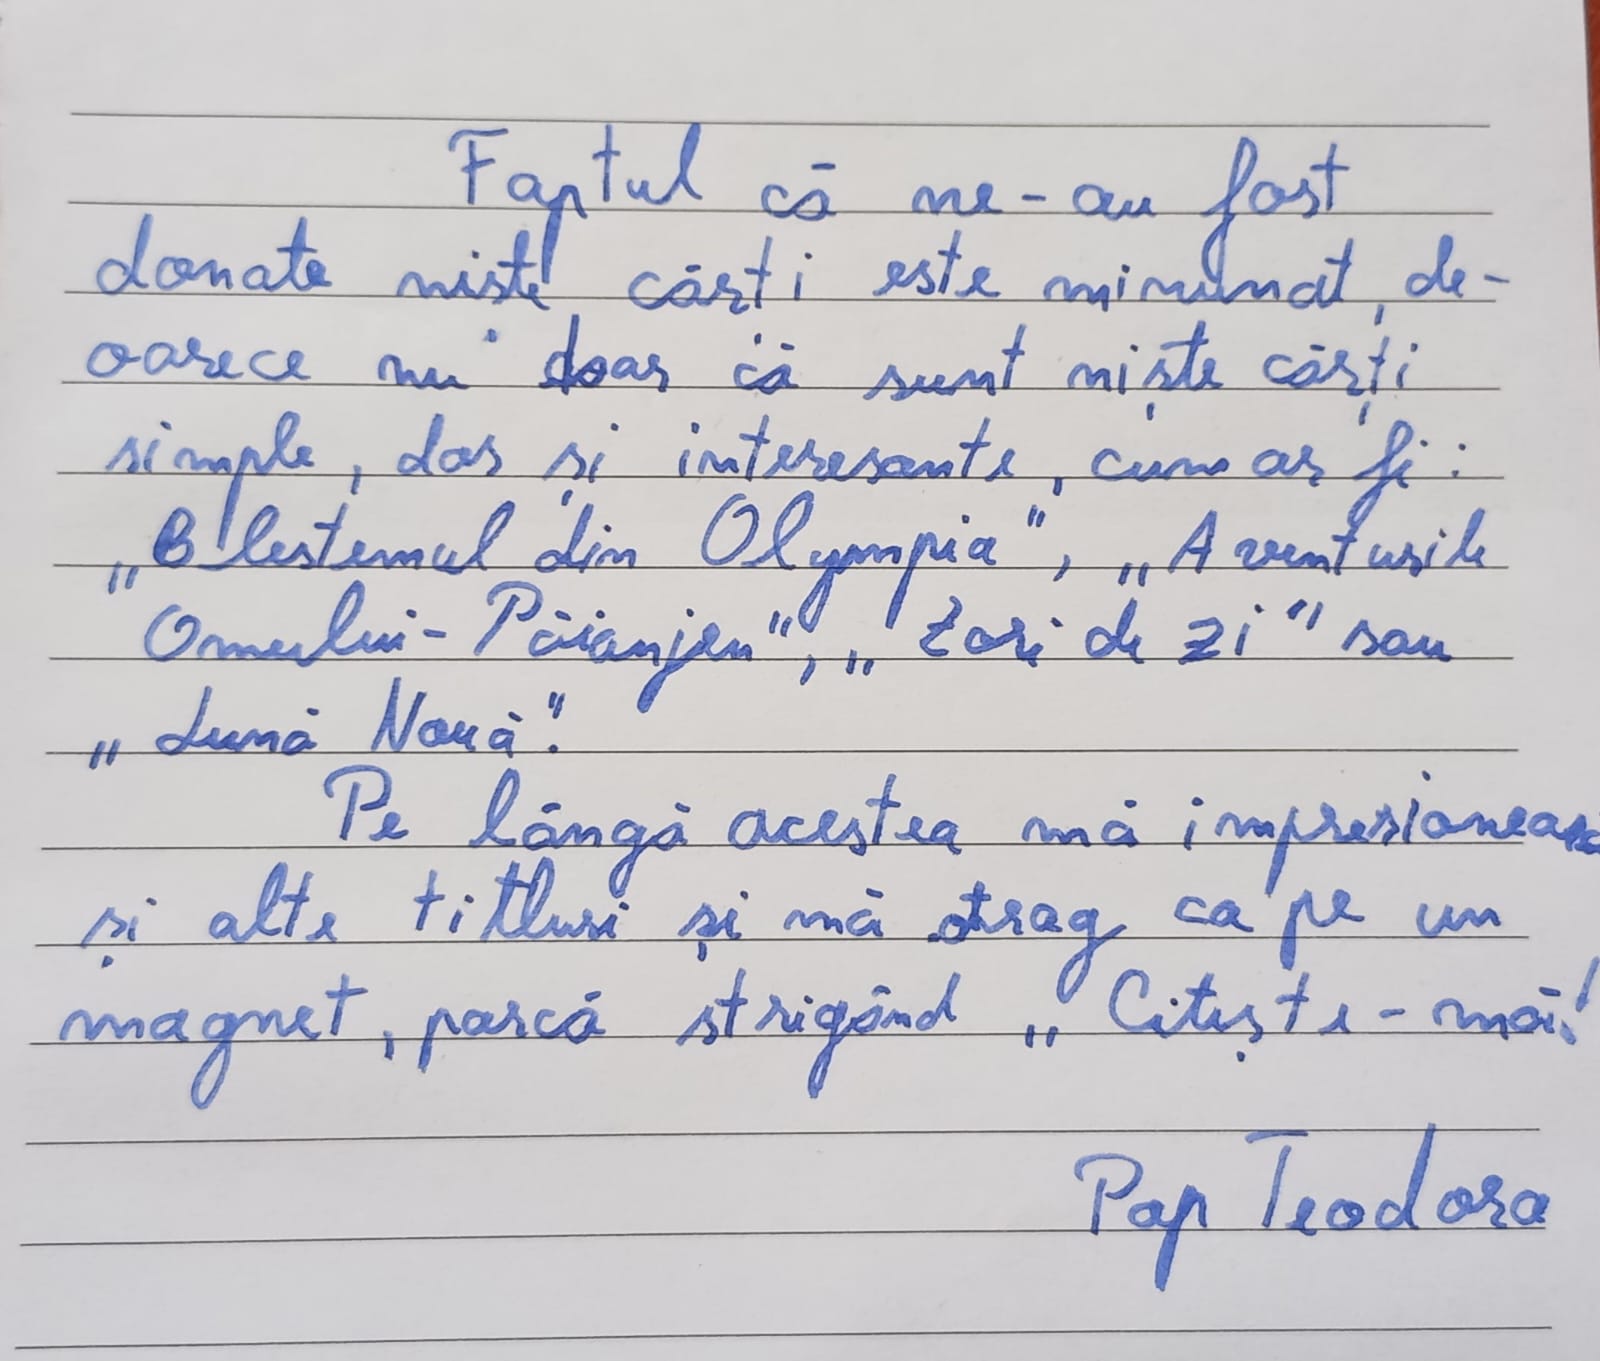 Faptul că ne-au fost
donate niste cărti este minunat, de-
oarece nu doar că sunt niște cărți
simple, dar și interesante, cum ar fi:
„Blestemul din Olympia", „Aventurile
Omului-Păianjen", „Zori de zi" sau
„Lună Nouă".
Pe lângă acestea mă impresionează
și alte titluri și mă atrag ca pe un
magnet, parcă strigând „Citește-mă!
Pap Teodora